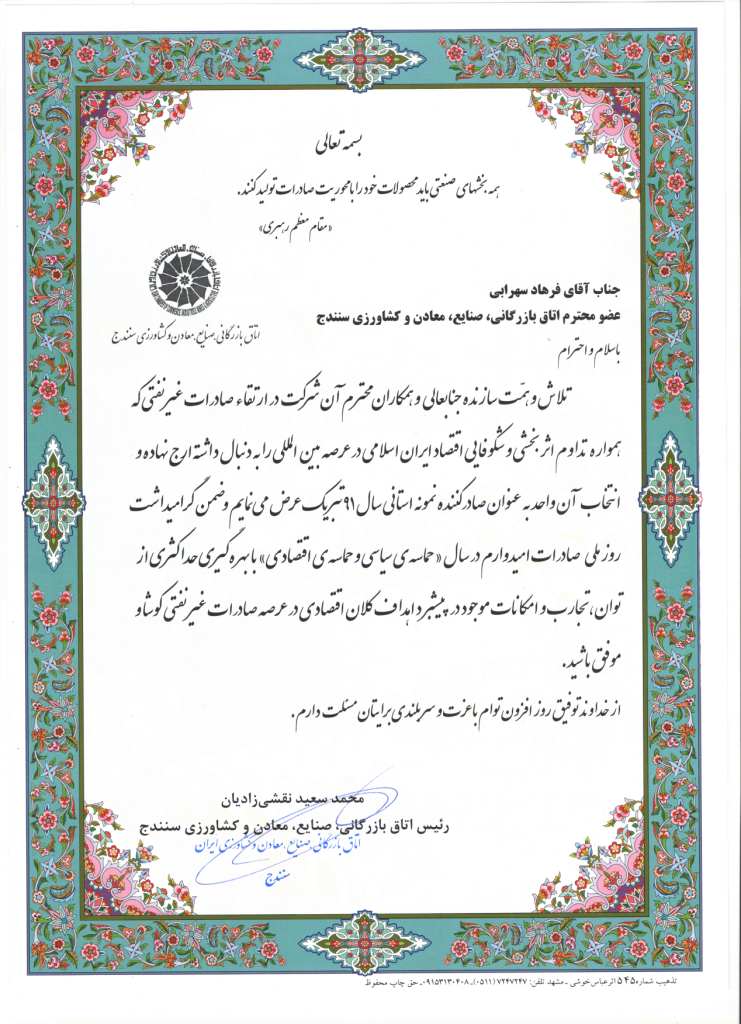 بسمه تعالی
همه بخشهای صنعتی باید محصولات خود را با محوریت صادرات تولید کنند.
«مقام معظم رهبری»
اتاق بازرگانی، صنایع، معادن و کشاورزی سنندج
جناب آقای فرهاد سهرابی
عضو محترم اتاق بازرگانی، صنایع، معادن و کشاورزی سنندج
باسلام و احترام
تلاش و همّت سازنده جنابعالی و همکاران محترم آن شرکت در ارتقاء صادرات غیرنفتی که
همواره تداوم اثربخشی و شکوفایی اقتصاد ایران اسلامی در عرصه بین المللی را به دنبال داشته ارج نهاده و
انتخاب آن واحد به عنوان صادرکننده نمونه استانی سال ۹۱ تبریک عرض می نمایم و ضمن گرامیداشت
روز ملی صادرات امیدوارم در سال «حماسه ی سیاسی و حماسه ی اقتصادی» با بهره گیری حداکثری از
توان، تجارب و امکانات موجود در پیشبرد اهداف کلان اقتصادی در عرصه صادرات غیرنفتی کوشا و
موفق باشید.
از خداوند توفیق روز افزون توام با عزت و سربلندی برایتان مسئلت دارم.
محمد سعید نقشی‌زادیان
رئیس اتاق بازرگانی، صنایع، معادن و کشاورزی سنندج
اتاق بازرگانی، صنایع، معادن و کشاورزی ایران
سنندج
تذهیب شماره ۵۴۵ اثر عباس خوشی ـ مشهد تلفن: ۷۲۴۷۲۴۷ (۰۵۱۱)ـ ۰۹۱۵۳۱۳۰۴۰۸ـ حق چاپ محفوظ